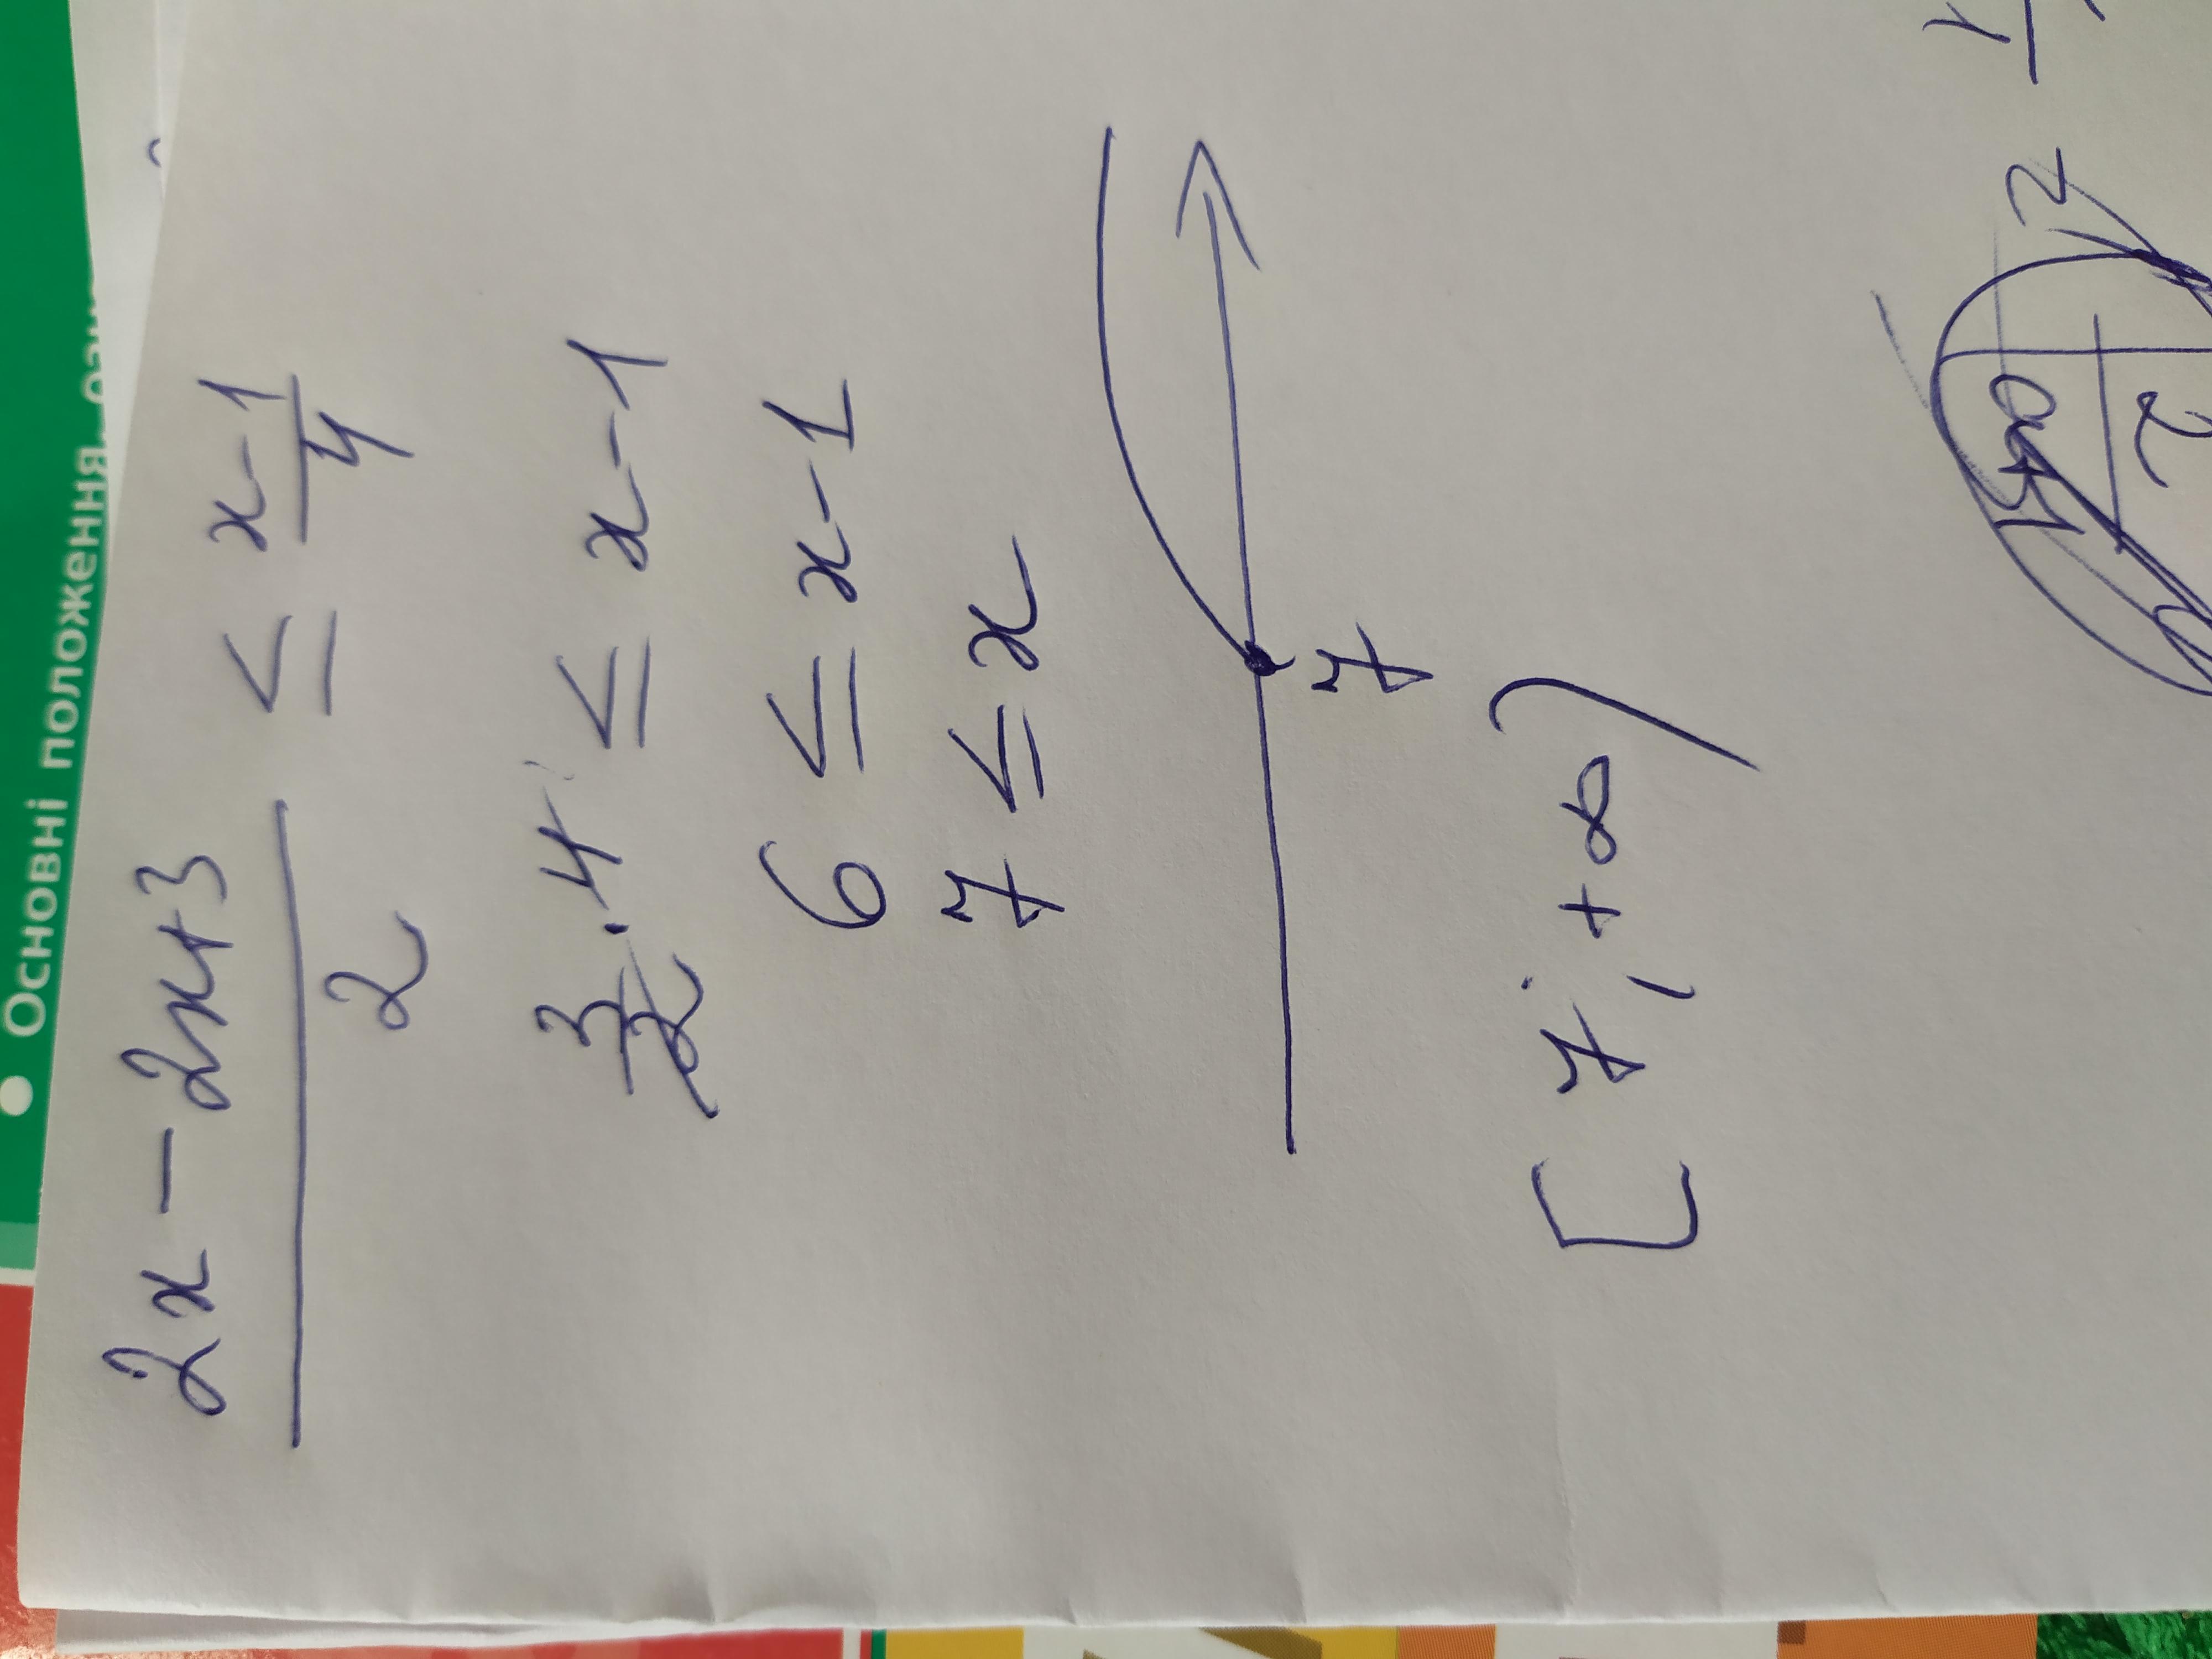 Основні положення
2x - 2x+3 / 2 ≤ x-1 / 4
3/2 · 4 ≤ x-1
6 ≤ x-1
7 ≤ x
7
[7; +∞)